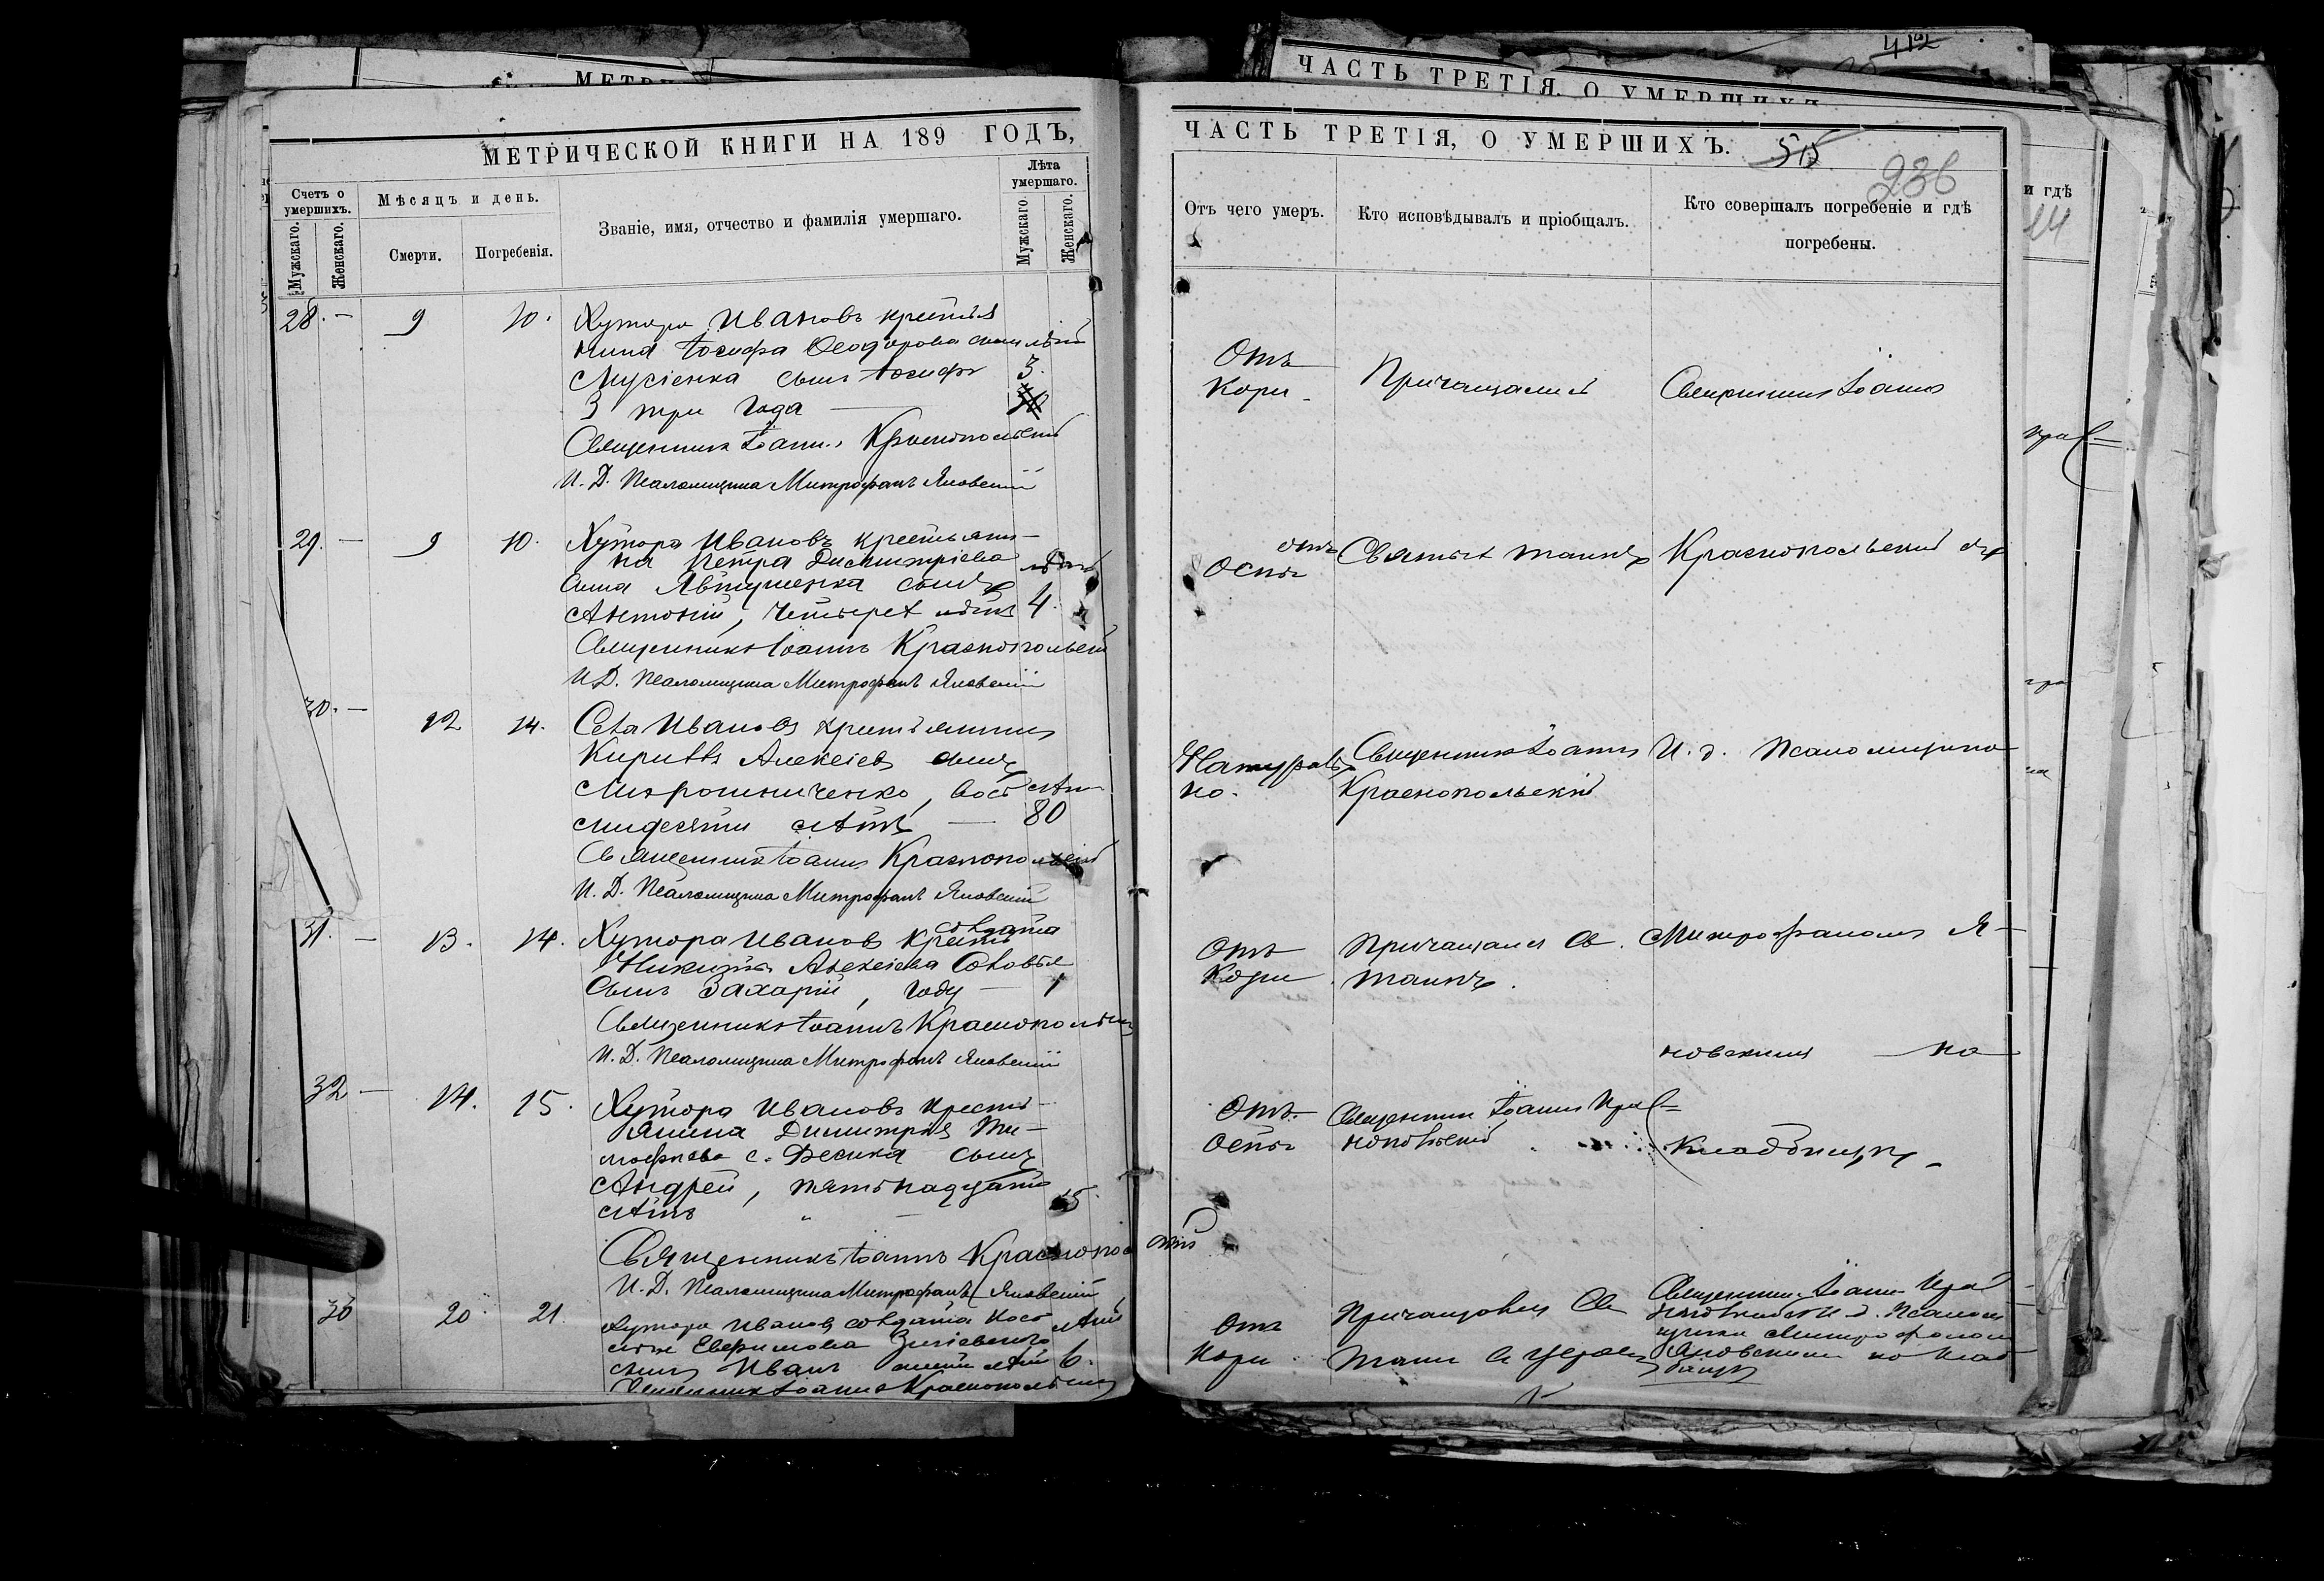 412
ЧАСТЬ ТРЕТІЯ, О УМЕРШИХЪ
МЕТРИЧЕСКОЙ КНИГИ НА 189 ГОДЪ,
Счетъ о умершихъ.
Мужскаго.
Женскаго.
Мѣсяцъ и день.
Смерти.
Погребенія.
Званіе, имя, отчество и фамилія умершаго.
Лѣта умершаго.
Мужскаго.
Женскаго.
28. — 9 10. Хутора Ивановъ крестья
нина Іосифа Ѳеодорова сына лѣтъ
Мусіенка сынъ Іосифъ 3.
3 три года —
Священникъ Іоаннъ Краснопольскій
И. Д. Псаломщика Митрофанъ Яновскій
29. — 9 10. Хутора Ивановъ крестьяни-
на Петра Димитріева лѣтъ
сына Явтушенка сынъ
Антоній, четырех лѣтъ 4.
Священникъ Іоаннъ Краснопольскій
И. Д. Псаломщика Митрофанъ Яновскій
30. — 12 14. Села Ивановъ крестьянинъ
Кириллъ Алексіевъ сынъ
Мирошниченко, вось лѣтъ
мидесяти лѣтъ — 80
Священникъ Іоаннъ Краснопольскій
И. Д. Псаломщика Митрофанъ Яновскій
31. — 13. 14. Хутора Ивановъ солдата
Никиты Алексіева Соловья
сынъ Захарій, году — 1
Священникъ Іоаннъ Краснопольскій
И. Д. Псаломщика Митрофанъ Яновскій
32 — 14. 15. Хутора Ивановъ кресть-
янина Димитрія Ти-
мофіева с. Десика сынъ
Андрей, пятьнадцати
лѣтъ 15.
Священникъ Іоаннъ Краснопольскій
И. Д. Псаломщика Митрофанъ Яновскій
20 21. Хутора Ивановъ солдата лѣтъ
Евфимова
сынъ Иванъ лѣтъ 6.
Священникъ Іоаннъ Краснопольскій
ЧАСТЬ ТРЕТІЯ, О УМЕРШИХЪ.
515
236
Отъ чего умеръ.
Кто исповѣдывалъ и пріобщалъ.
Кто совершалъ погребеніе и гдѣ
погребены.
и гдѣ
14
Отъ
Кори
Причащался
Священникъ Іоаннъ
отъ
Оспы
Святыхъ таинъ
Краснопольскій
Натураль
но.
Священникъ Іоаннъ
Краснопольскій
И. д. Псаломщика
Отъ
Кори
Причащался Св.
таинъ.
Митрофаномъ Я-
новскимъ — на
Отъ
Оспы
Священникъ Іоаннъ Крас-
нопольскій
Кладбищѣ.
Отъ
Кори
Причащался Св
таин
Священник Іоанн Крас
нопольскій И. д. Псалом
щика Митрофаном
Яновским на клад
бищѣ